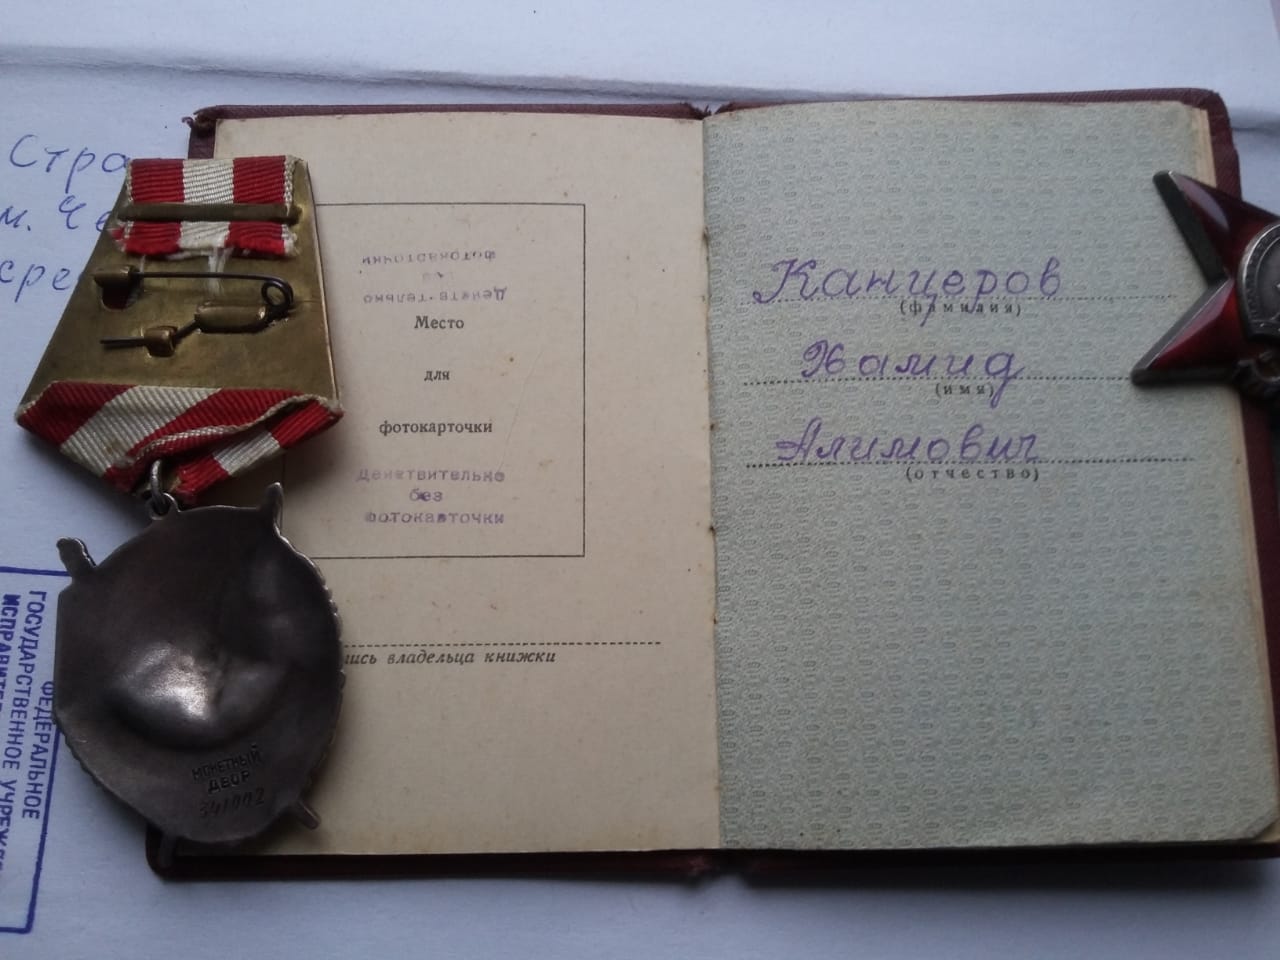 Стра
м. Че
сре
фотокарточки
без
Действительно
Место
для
фотокарточки
Действительно
без
фотокарточки
пись владельца книжки
Канцеров
(фамилия)
Хамид
(имя)
Алимович
(отчество)
МОНЕТНЫЙ
ДВОР
341002
ФЕДЕРАЛЬНОЕ
ГОСУДАРСТВЕННОЕ УЧРЕЖ
ИСПРАВИТЕ